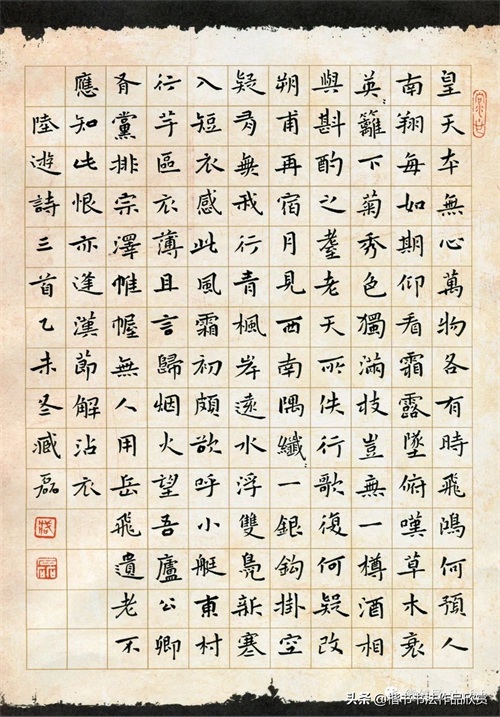 皇天本無心萬物各有時飛鴻何預人
南翔每如期仰看霜露墜俯嘆草木衰
英〻籬下菊秀色獨滿枝豈無一樽酒相
與斟酌之耋老天所佚行歌復何疑改
朔甫再宿月見西南隅纖〻一銀鉤掛空
疑有無我行青楓岸遠水浮雙鳧新寒
入短衣感此風霜初頗欲呼小艇東村
行芋區衣薄且言歸烟火望吾廬公卿
有黨排宗澤帷幄無人用岳飛遺老不
應知此恨亦逢漢節解沾衣
陸遊詩三首乙未冬臧磊
头条 @楷书书法作品欣赏